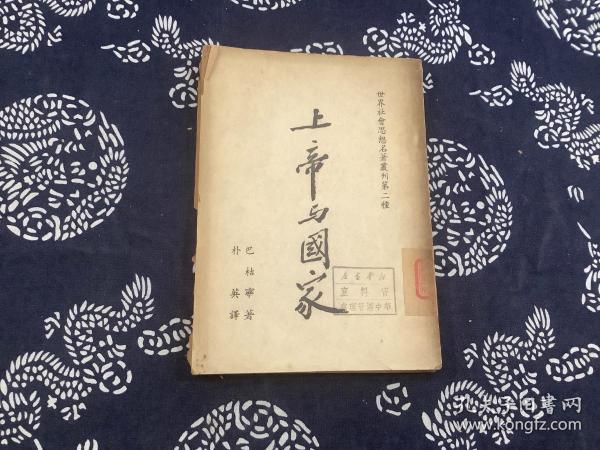 世界社會思想名著叢刊第二種
上帝与國家
巴枯寧著
朴英譯
孔夫子旧書网
www.kongfz.com